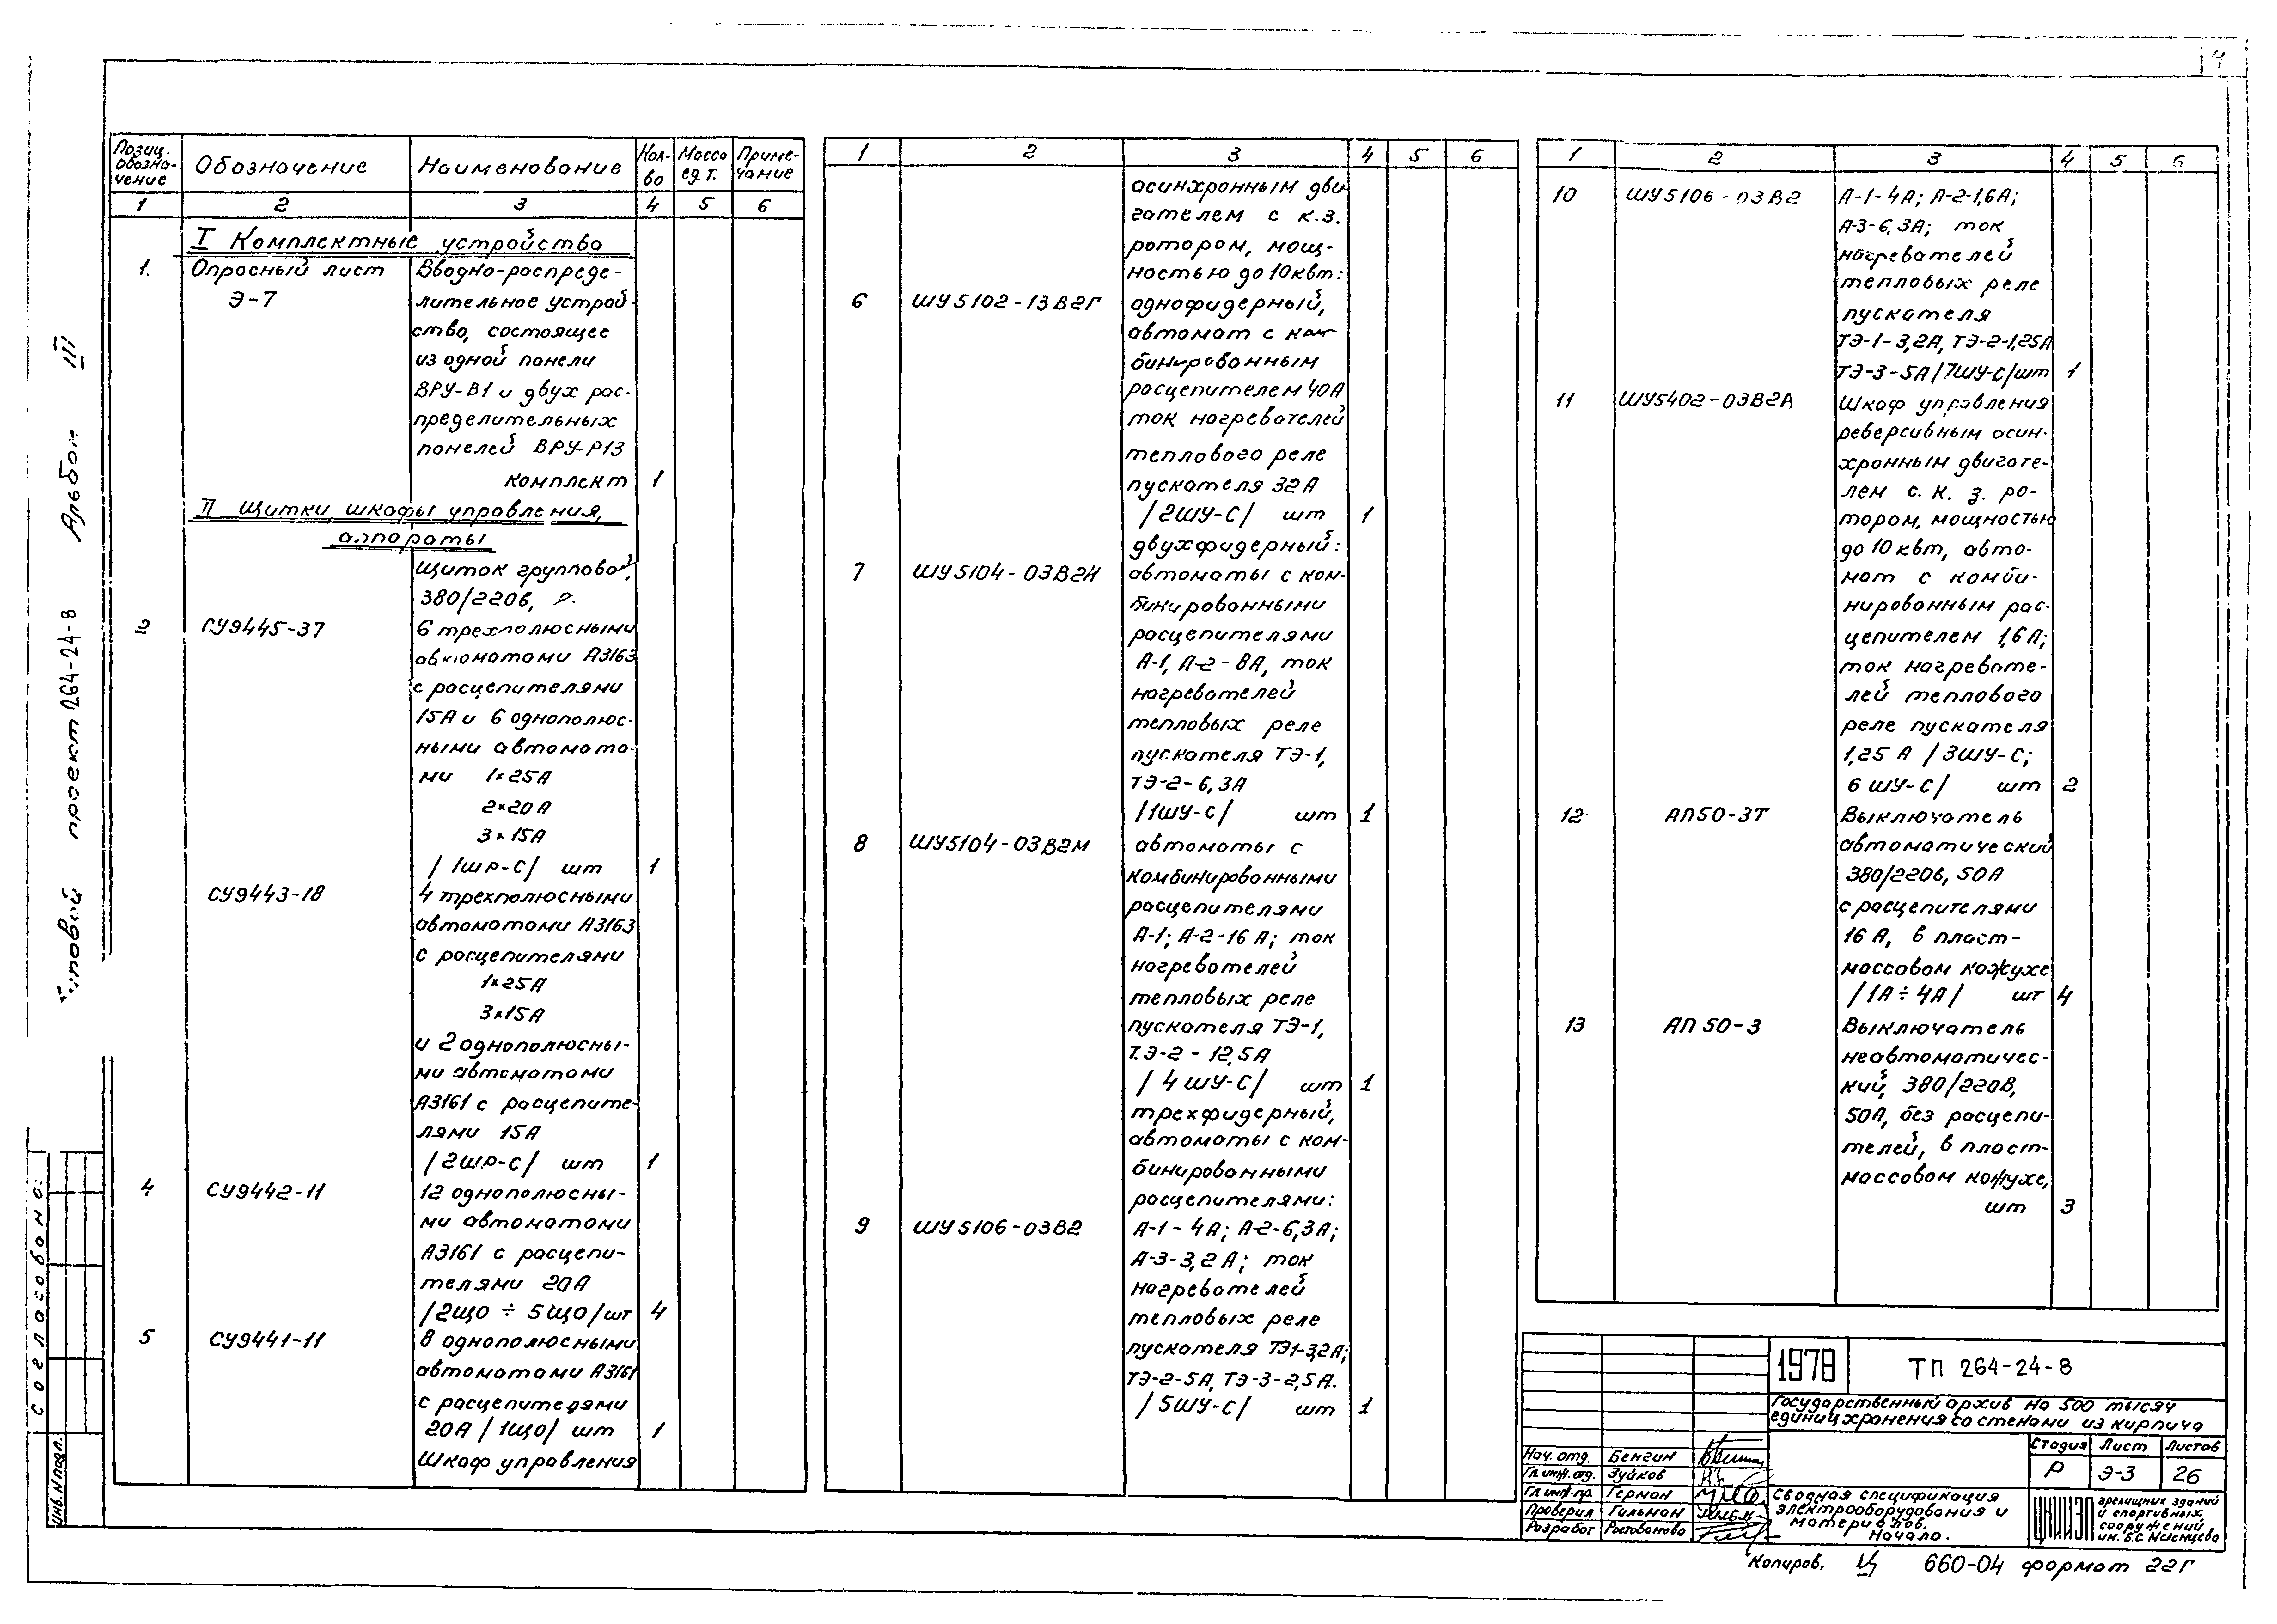 Типовой проект 264-24-8 Альбом III
Согласовано:
Инв. N подл.
Позиц. обозначение
Обозначение
Наименование
Кол-во
Масса ед. т.
Примечание
1 2 3 4 5 6
I Комплектные устройства
1. Опросный лист Вводно-распреде-
Э-7 лительное устрой-
ство, состоящее
из одной панели
ВРУ-В1 и двух рас-
пределительных
панелей ВРУ-Р13
комплект 1
II Щитки, шкафы управления,
аппараты
Щиток групповой,
380/220в, с.
2 СУ9445-37 6 трехполюсными
автоматами А3163
с расцепителями
15А и 6 однополюс-
ными автомата-
ми 1×25А
2×20А
3×15А
/1ШР-С/ шт 1
СУ9443-18 4 трехполюсными
автоматами А3163
с расцепителями
1×25А
3×15А
и 2 однополюсны-
ми автоматами
А3161 с расцепите-
лями 15А
/2ШР-С/ шт 1
4 СУ9442-11 12 однополюсны-
ми автоматами
А3161 с расцепи-
телями 20А
/2ЩО ÷ 5ЩО/шт 4
5 СУ9441-11 8 однополюсными
автоматами А3161
с расцепителями
20А /1ЩО/ шт 1
Шкаф управления
1 2 3 4 5 6
асинхронным дви-
гателем с к.з.
ротором, мощ-
ностью до 10квт:
6 ШУ5102-13В2Г однофидерный,
автомат с ком-
бинированным
расцепителем 40А
ток нагревателей
теплового реле
пускателя 32А
/2ШУ-С/ шт 1
двухфидерный:
7 ШУ5104-03В2К автоматы с ком-
бинированными
расцепителями
А-1, А-2-8А, ток
нагревателей
тепловых реле
пускателя ТЭ-1,
ТЭ-2-6,3А
/1ШУ-С/ шт 1
8 ШУ5104-03В2М автоматы с
комбинированными
расцепителями
А-1; А-2-16А; ток
нагревателей
тепловых реле
пускателя ТЭ-1,
ТЭ-2-12,5А
/4ШУ-С/ шт 1
трехфидерный,
автоматы с ком-
бинированными
расцепителями:
9 ШУ5106-03В2 А-1-4А; А-2-6,3А;
А-3-3,2А; ток
нагревателей
тепловых реле
пускателя ТЭ1-3,2А;
ТЭ-2-5А, ТЭ-3-2,5А.
/5ШУ-С/ шт 1
1 2 3 4 5 6
10 ШУ5106-03В2 А-1-4А; А-2-1,6А;
А-3-6,3А; ток
нагревателей
тепловых реле
пускателя
ТЭ-1-3,2А, ТЭ-2-1,25А
ТЭ-3-5А/7ШУ-С/шт 1
11 ШУ5402-03В2А Шкаф управления
реверсивным асин-
хронным двигате-
лем с. к. з. ро-
тором, мощностью
до 10 квт, авто-
мат с комби-
нированным рас-
цепителем 1,6А;
ток нагревате-
лей теплового
реле пускателя
1,25А /3ШУ-С;
6ШУ-С/ шт 2
12 АП50-3Т Выключатель
автоматический
380/220в, 50А
с расцепителями
16А, в пласт-
массовом кожухе
/1А÷4А/ шт 4
13 АП50-3 Выключатель
неавтоматичес-
кий, 380/220В,
50А, без расцепи-
телей, в пласт-
массовом кожухе,
шт 3
1978 ТП 264-24-8
Государственный архив на 500 тысяч
единиц хранения со стенами из кирпича
Стадия Лист Листов
Р Э-3 26
Нач. отд. Бенгин
Гл. инж. отд. Зуйков
Гл. инж. пр. Герман
Проверил Гильман
Разработ Ростованова
Сводная спецификация
электрооборудования и
материалов.
Начало.
ЦНИИЭП
зрелищных зданий
и спортивных
сооружений
им. Б.С. Мезенцева
Копиров. 660-04 формат 22Г